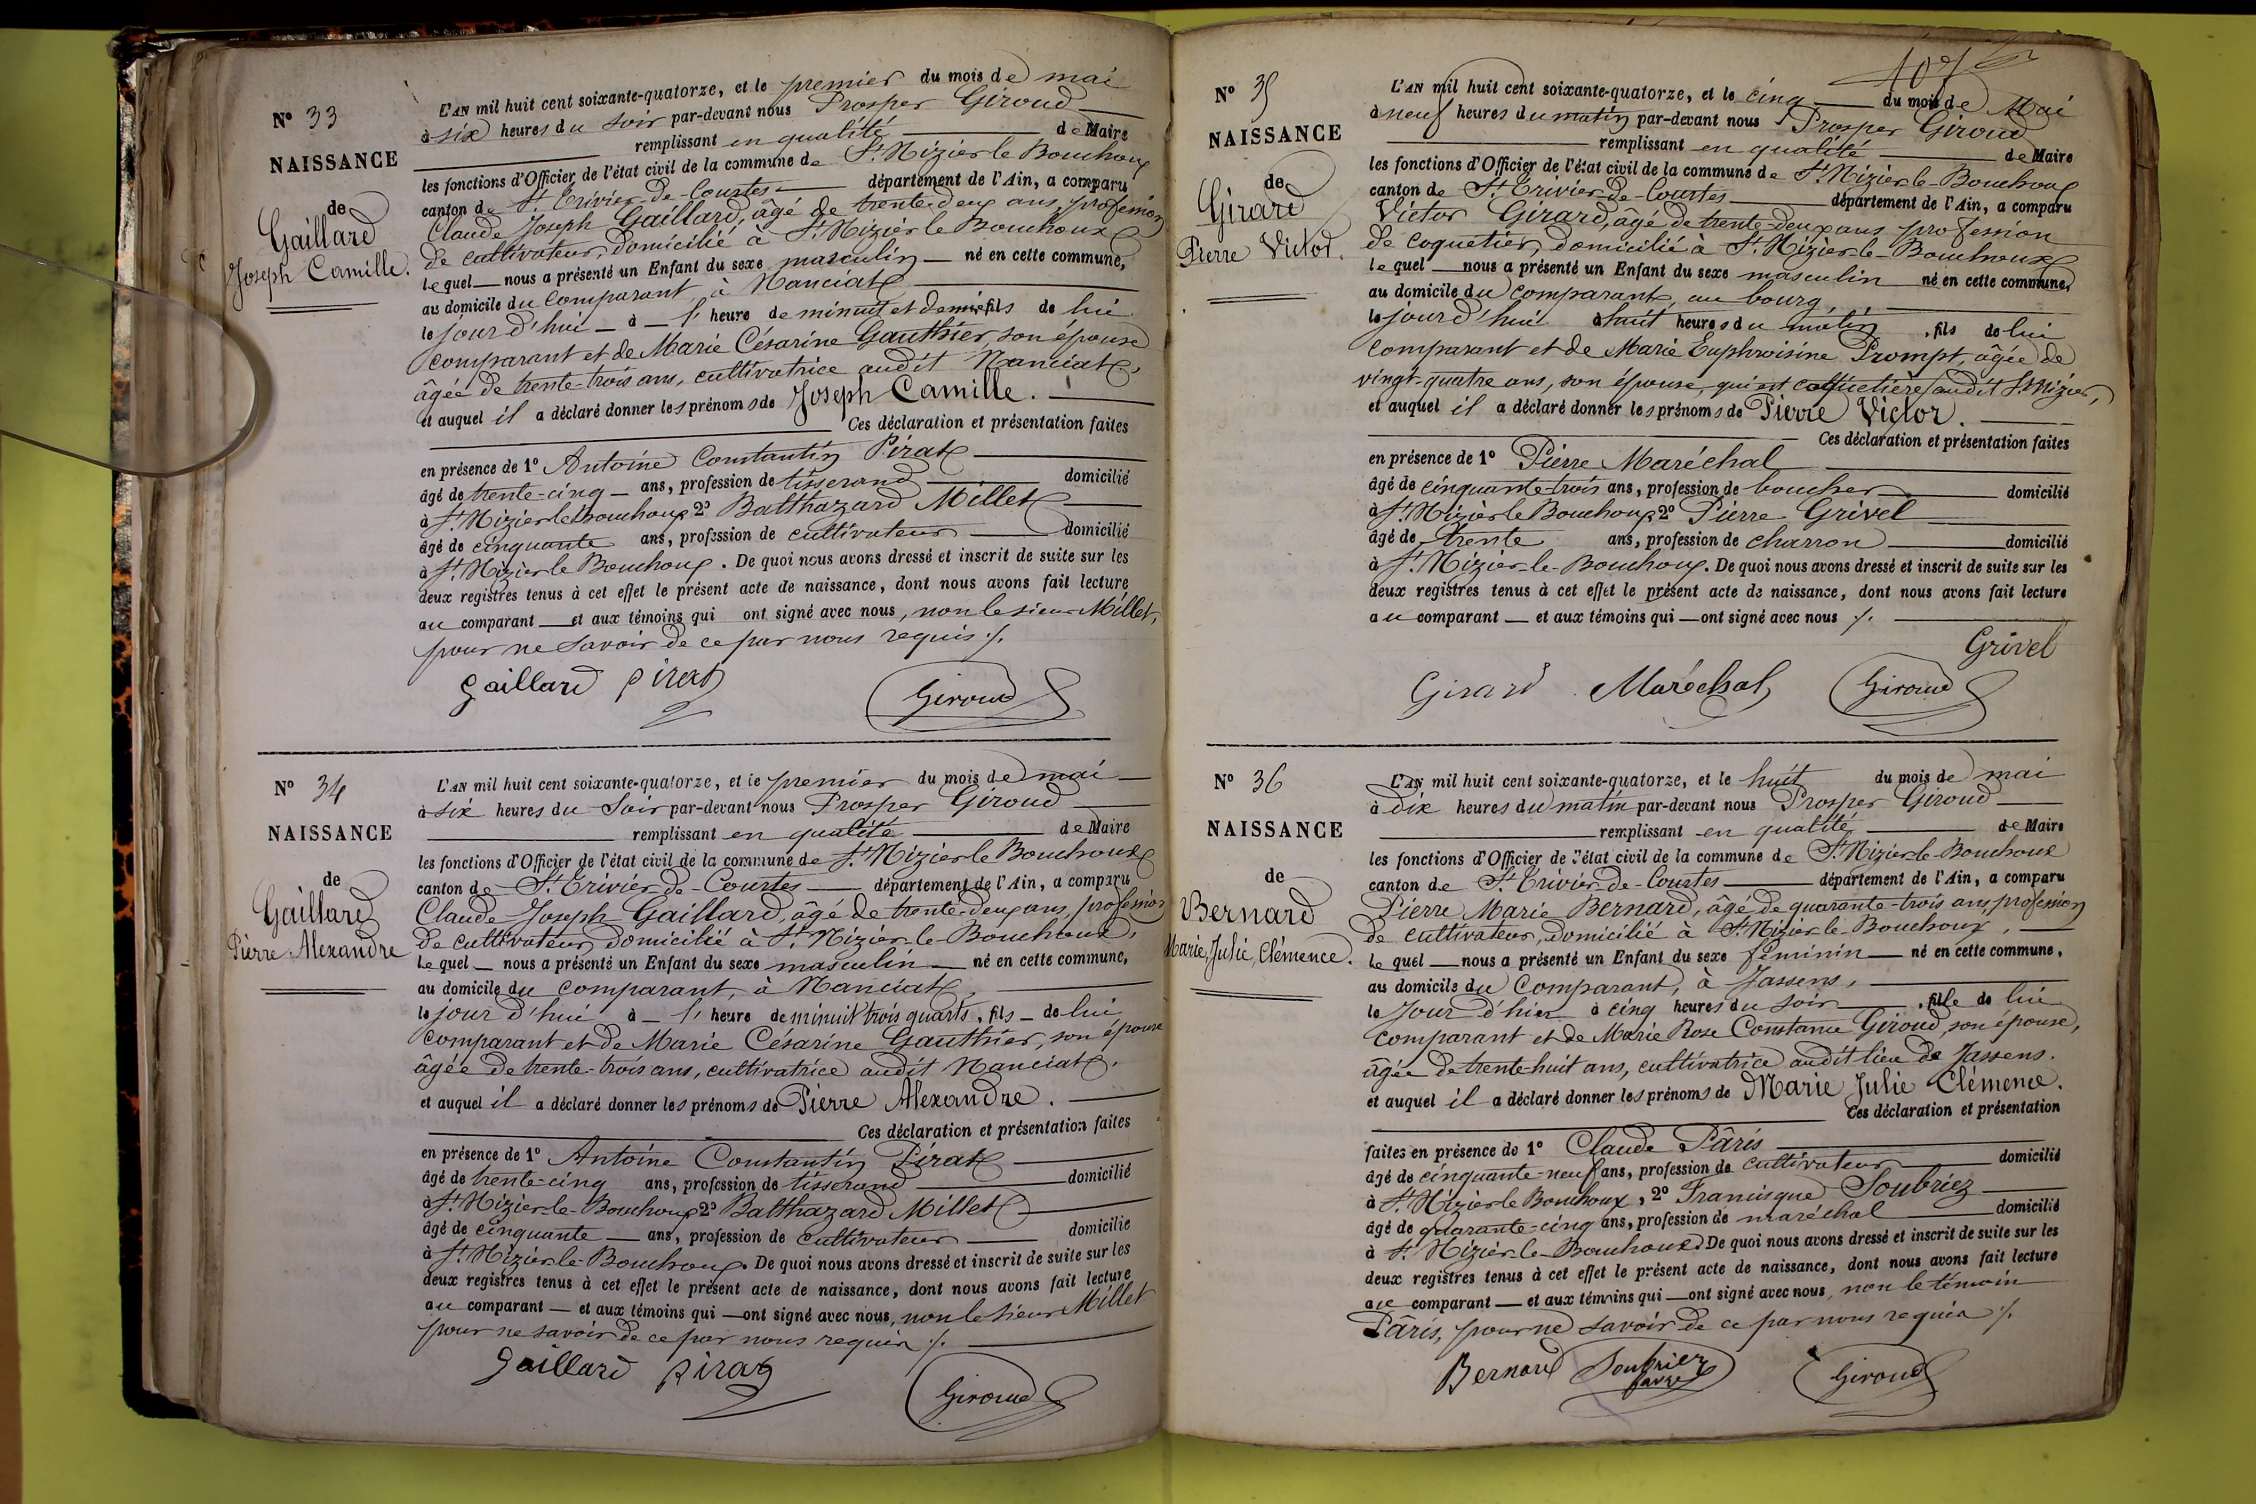 N° 33
NAISSANCE
de
Gaillard
Joseph Camille.
L'AN mil huit cent soixante-quatorze, et le premier du mois de mai
à six heures du soir par-devant nous Prosper Giroud
remplissant en qualité de Maire
les fonctions d'Officier de l'état civil de la commune de St Nizier le Bouchoux
canton de St Trivier-de-Courtes département de l'Ain, a comparu
Claude Joseph Gaillard, âgé de trente-deux ans, profession
de cultivateur, domicilié à St Nizier le Bouchoux
lequel nous a présenté un Enfant du sexe masculin né en cette commune,
au domicile du comparant, à Nanciat
le jour d'hui à l' heure de minuit et demie fils de lui
comparant et de Marie Césarine Gauthier, son épouse
âgée de trente-trois ans, cultivatrice audit Nanciat,
et auquel il a déclaré donner les prénoms de Joseph Camille.
Ces déclaration et présentation faites
en présence de 1° Antoine Constantin Pirat
âgé de trente-cinq ans, profession de tisserand domicilié
à St Nizier le Bouchoux 2° Balthazard Millet
âgé de cinquante ans, profession de cultivateur domicilié
à St Nizier le Bouchoux. De quoi nous avons dressé et inscrit de suite sur les
deux registres tenus à cet effet le présent acte de naissance, dont nous avons fait lecture
au comparant et aux témoins qui ont signé avec nous, non le sieur Millet,
pour ne savoir de ce par nous requis ./.
Gaillard Pirat Giroud
N° 34
NAISSANCE
de
Gaillard
Pierre Alexandre
L'AN mil huit cent soixante-quatorze, et le premier du mois de mai
à six heures du soir par-devant nous Prosper Giroud
remplissant en qualité de Maire
les fonctions d'Officier de l'état civil de la commune de St Nizier le Bouchoux
canton de St Trivier-de-Courtes département de l'Ain, a comparu
Claude Joseph Gaillard, âgé de trente-deux ans, profession
de cultivateur, domicilié à St Nizier-le-Bouchoux,
lequel nous a présenté un Enfant du sexe masculin né en cette commune,
au domicile du comparant, à Nanciat,
le jour d'hui à l' heure de minuit trois quarts, fils de lui
comparant et de Marie Césarine Gauthier, son épouse
âgée de trente-trois ans, cultivatrice audit Nanciat,
et auquel il a déclaré donner les prénoms de Pierre Alexandre.
Ces déclaration et présentation faites
en présence de 1° Antoine Constantin Pirat
âgé de trente-cinq ans, profession de tisserand domicilié
à St Nizier-le-Bouchoux 2° Balthazard Millet
âgé de cinquante ans, profession de cultivateur domicilié
à St Nizier-le-Bouchoux. De quoi nous avons dressé et inscrit de suite sur les
deux registres tenus à cet effet le présent acte de naissance, dont nous avons fait lecture
au comparant et aux témoins qui ont signé avec nous, non le sieur Millet
pour ne savoir de ce par nous requis ./.
Gaillard Pirat Giroud
107
N° 35
NAISSANCE
de
Girard
Pierre Victor.
L'AN mil huit cent soixante-quatorze, et le cinq du mois de Mai
à neuf heures du matin par-devant nous Prosper Giroud
remplissant en qualité de Maire
les fonctions d'Officier de l'état civil de la commune de St Nizier-le-Bouchoux
canton de St Trivier-de-Courtes département de l'Ain, a comparu
Victor Girard, âgé de trente-deux ans profession
de coquetier, domicilié à St Nizier-le-Bouchoux
lequel nous a présenté un Enfant du sexe masculin né en cette commune,
au domicile du comparant, au bourg,
le jour d'hui à huit heures du matin, fils de lui
comparant et de Marie Euphroisine Prompt, âgée de
vingt-quatre ans, son épouse, qui est coquetière audit St Nizier,
et auquel il a déclaré donner les prénoms de Pierre Victor.
Ces déclaration et présentation faites
en présence de 1° Pierre Maréchal
âgé de cinquante-trois ans, profession de boucher domicilié
à St Nizier le Bouchoux, 2° Pierre Grivel
âgé de trente ans, profession de charron domicilié
à St Nizier-le-Bouchoux. De quoi nous avons dressé et inscrit de suite sur les
deux registres tenus à cet effet le présent acte de naissance, dont nous avons fait lecture
au comparant et aux témoins qui ont signé avec nous ./.
Grivel
Girard Maréchal Giroud
N° 36
NAISSANCE
de
Bernard
Marie, Julie, Clémence.
L'AN mil huit cent soixante-quatorze, et le huit du mois de mai
à dix heures du matin par-devant nous Prosper Giroud
remplissant en qualité de Maire
les fonctions d'Officier de l'état civil de la commune de St Nizier-le-Bouchoux
canton de St Trivier-de-Courtes département de l'Ain, a comparu
Pierre Marie Bernard, âgé de quarante-trois ans, profession
de cultivateur, domicilié à St Nizier-le-Bouchoux,
lequel nous a présenté un Enfant du sexe féminin né en cette commune,
au domicile du comparant, à Jassens,
le jour d'hier à cinq heures du soir, fille de lui
comparant et de Marie Rose Constance Giroud, son épouse,
âgée de trente-huit ans, cultivatrice audit lieu de Jassens.
et auquel il a déclaré donner les prénoms de Marie Julie Clémence.
Ces déclaration et présentation
faites en présence de 1° Claude Pâris
âgé de cinquante-neuf ans, profession de cultivateur domicilié
à St Nizier le Bouchoux, 2° Francisque Soubriez
âgé de quarante-cinq ans, profession de maréchal domicilié
à St Nizier-le-Bouchoux. De quoi nous avons dressé et inscrit de suite sur les
deux registres tenus à cet effet le présent acte de naissance, dont nous avons fait lecture
au comparant et aux témoins qui ont signé avec nous, non le témoin
Pâris, pour ne savoir de ce par nous requis ./.
Bernard Soubriez Giroud